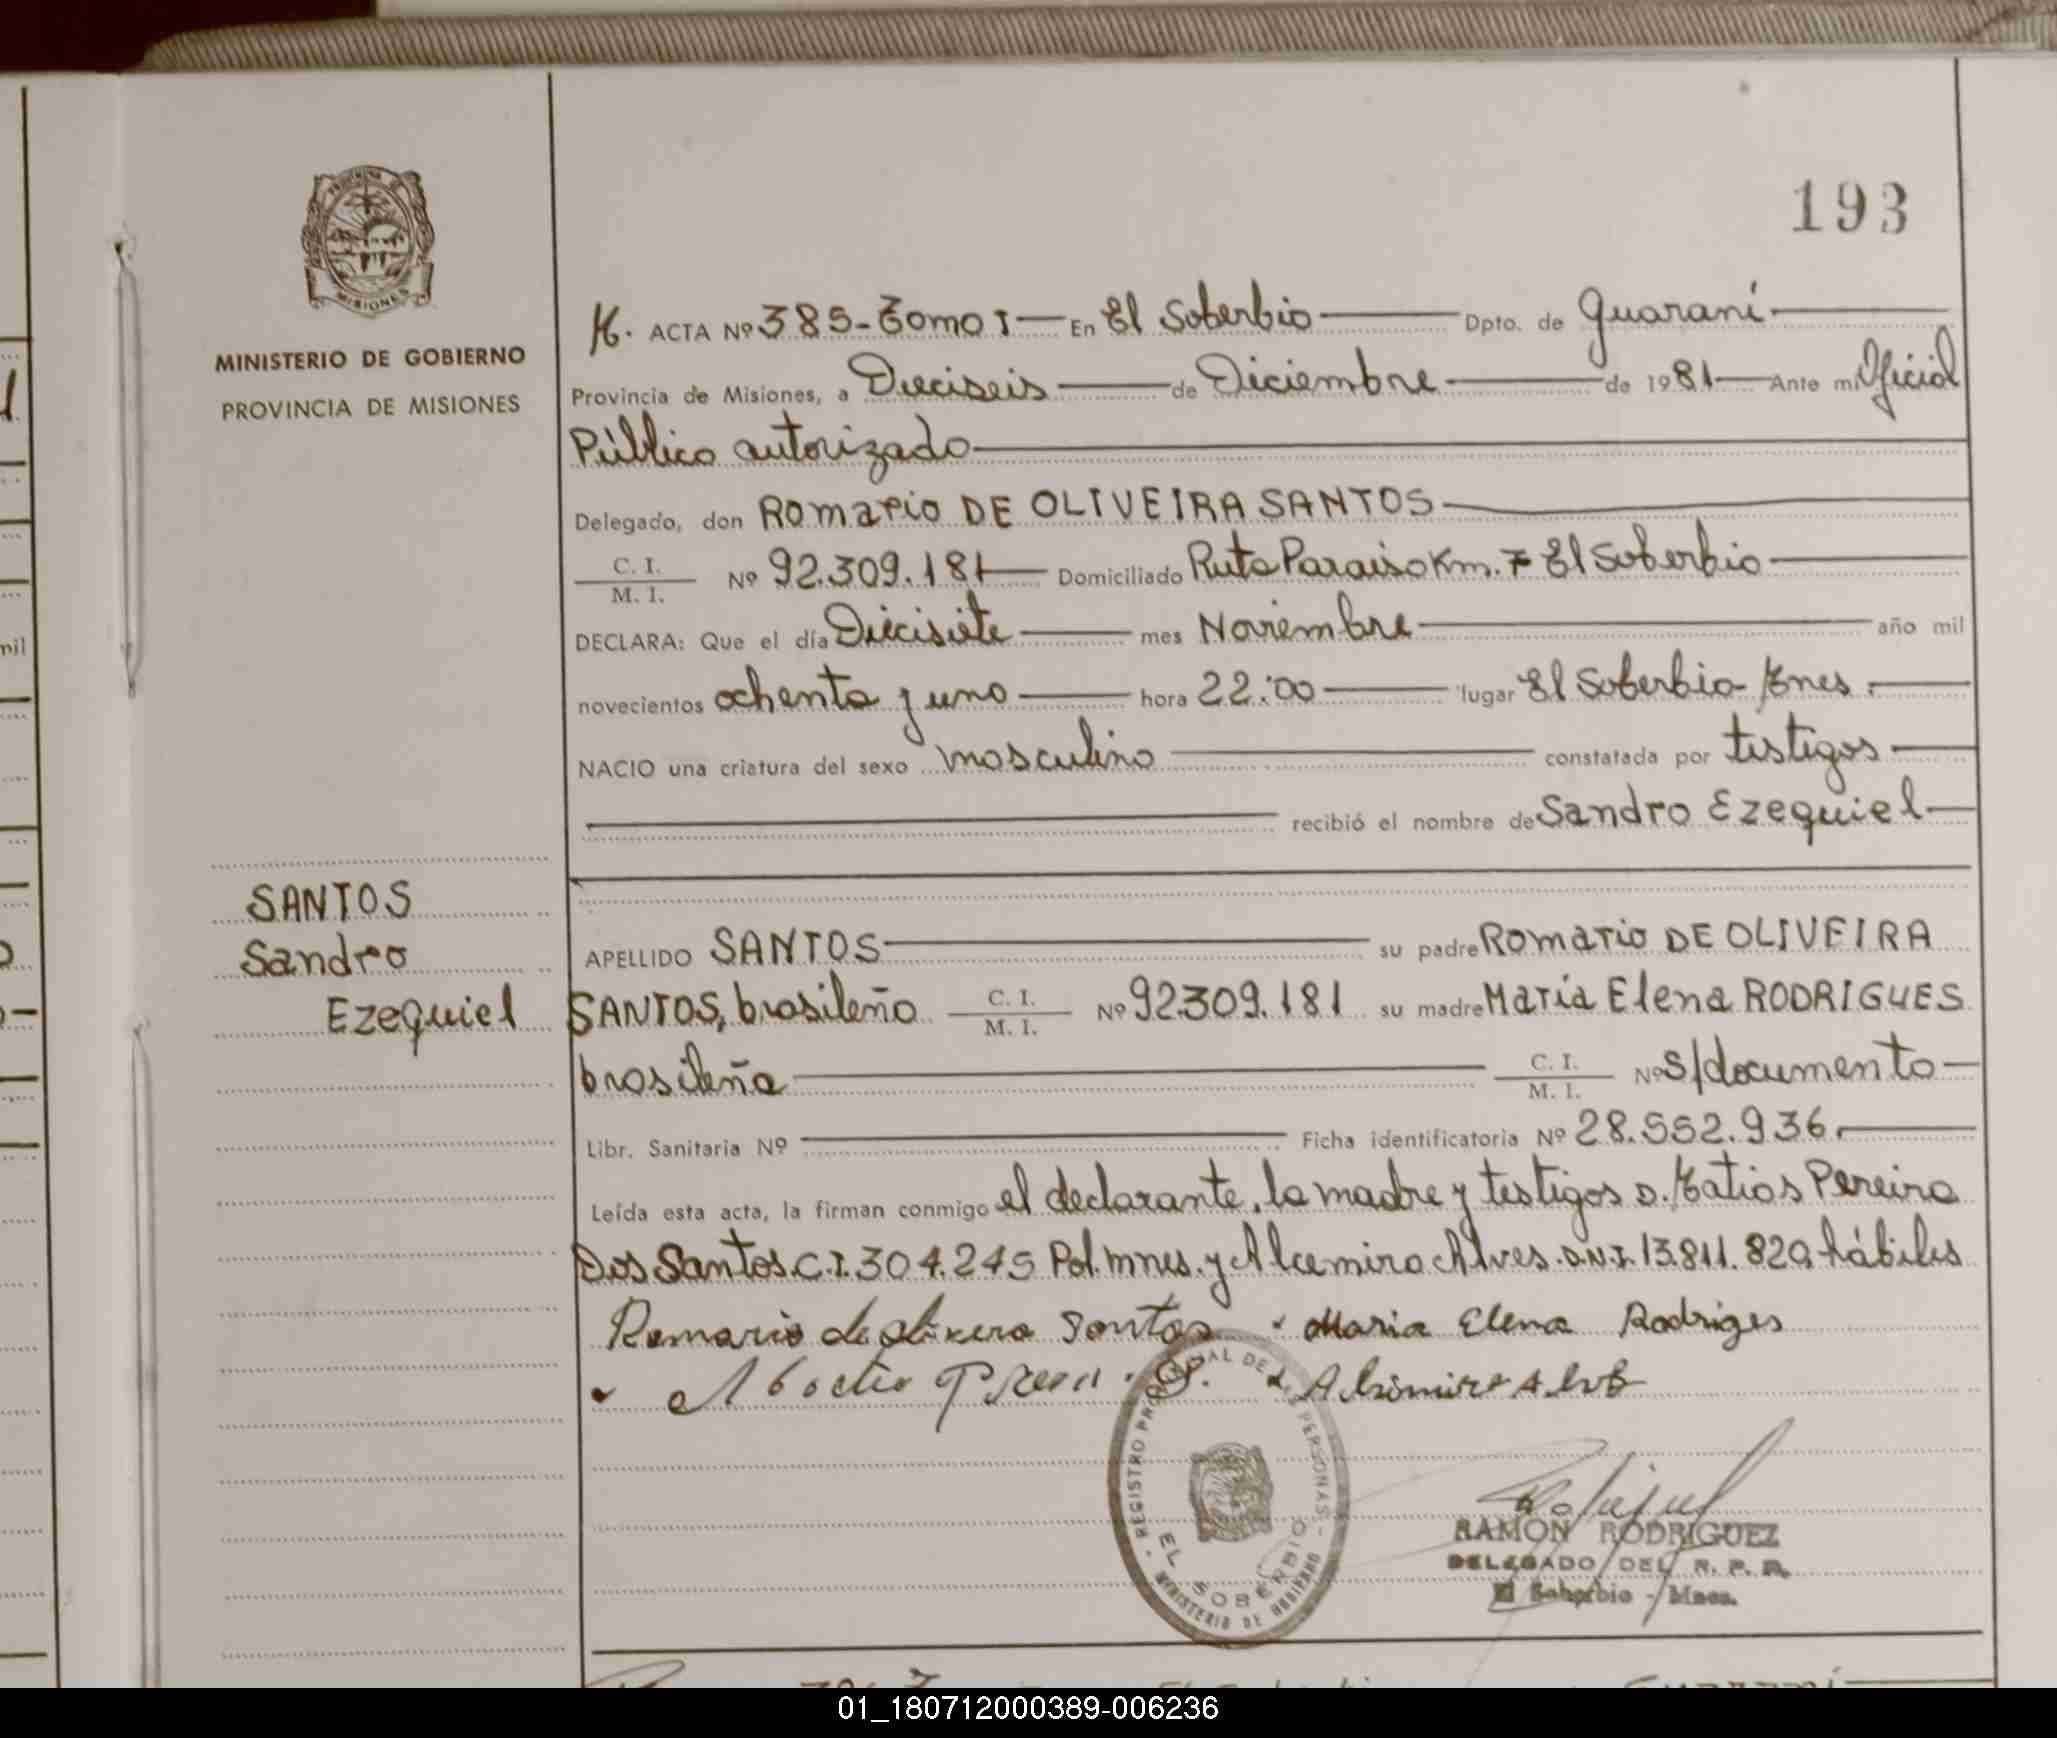 193
MINISTERIO DE GOBIERNO
PROVINCIA DE MISIONES
MISIONES
SANTOS
Sandro
Ezequiel
ACTA Nº 385-Tomo I En El Soberbio Dpto. de Guaraní
Provincia de Misiones, a Dieciseis de Diciembre de 1981 Ante mi Oficial
Público autorizado
Delegado, don Romario DE OLIVEIRA SANTOS
C. I.
M. I. Nº 92.309.181 Domiciliado Ruta Paraiso Km. 7 El Soberbio
DECLARA: Que el día Diecisiete mes Noviembre año mil
novecientos ochenta y uno hora 22:00 lugar El Soberbio Mnes.
NACIO una criatura del sexo masculino constatada por testigos
recibió el nombre de Sandro Ezequiel
APELLIDO SANTOS su padre Romario DE OLIVEIRA
SANTOS, brasileño C. I. M. I. Nº 92.309.181 su madre María Elena RODRIGUES
brasileña C. I. M. I. Nº s/documento
Libr. Sanitaria Nº Ficha identificatoria Nº 28.552.936.
Leída esta acta, la firman conmigo el declarante, la madre y testigos D. Matias Pereira
Dos Santos C.I. 304.245 Pol. Mnes. y Alcemiro Alves. D.N.I. 13.811.829 hábiles
Romario de Santos Maria Elena Rodriges
REGISTRO PROVINCIAL DE LAS PERSONAS
EL SOBERBIO
MINISTERIO DE GOBIERNO
RAMON RODRIGUEZ
DELEGADO DEL R. P. P.
El Soberbio - Mnes.
01_180712000389-006236